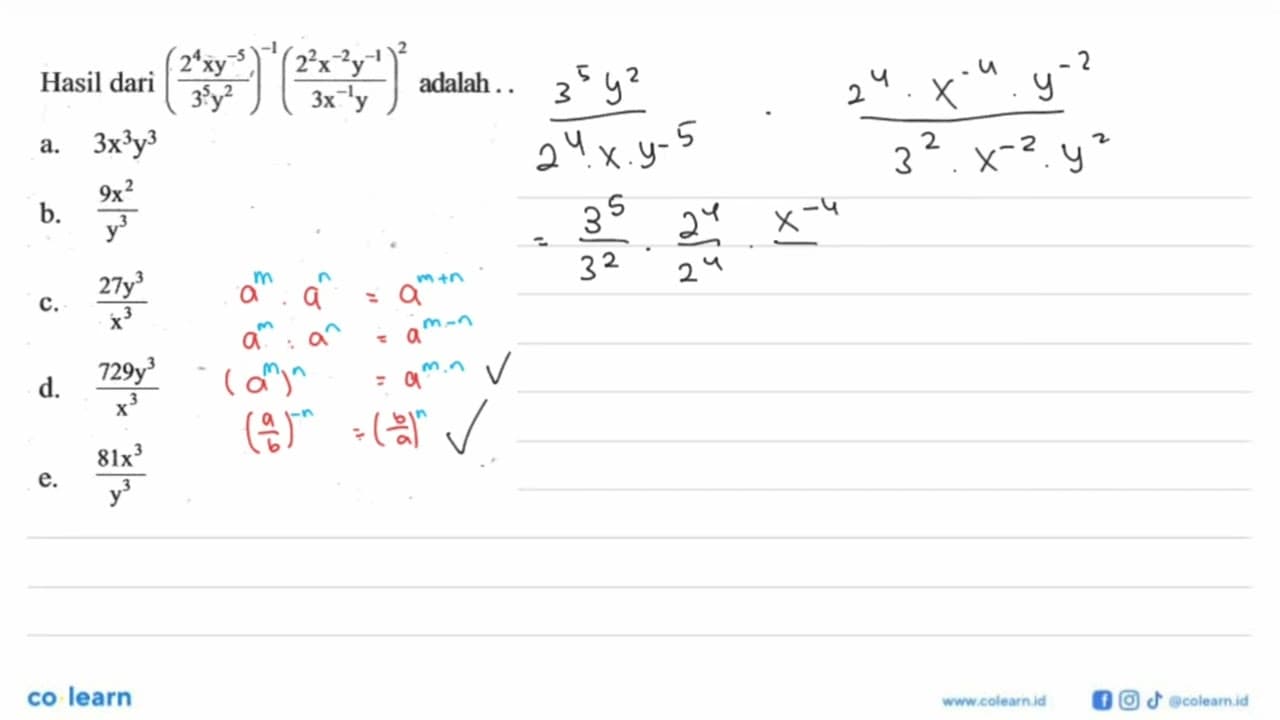 Hasil dari (2⁴xy⁻⁵/3⁵y²)⁻¹ (2²x⁻²y⁻¹/3x⁻¹y)² adalah . .
a. 3x³y³
b. 9x²/y³
c. 27y³/x³
d. 729y³/x³
e. 81x³/y³
aᵐ . aⁿ = aᵐ⁺ⁿ
aᵐ : aⁿ = aᵐ⁻ⁿ
(aᵐ)ⁿ = aᵐ·ⁿ ✓
(a/b)⁻ⁿ = (b/a)ⁿ ✓
3⁵y²/2⁴.x.y⁻⁵ . 2⁴.x⁻⁴.y⁻²/3².x⁻².y²
= 3⁵/3² . 2⁴/2⁴ . x⁻⁴/
co learn
www.colearn.id
@colearn.id